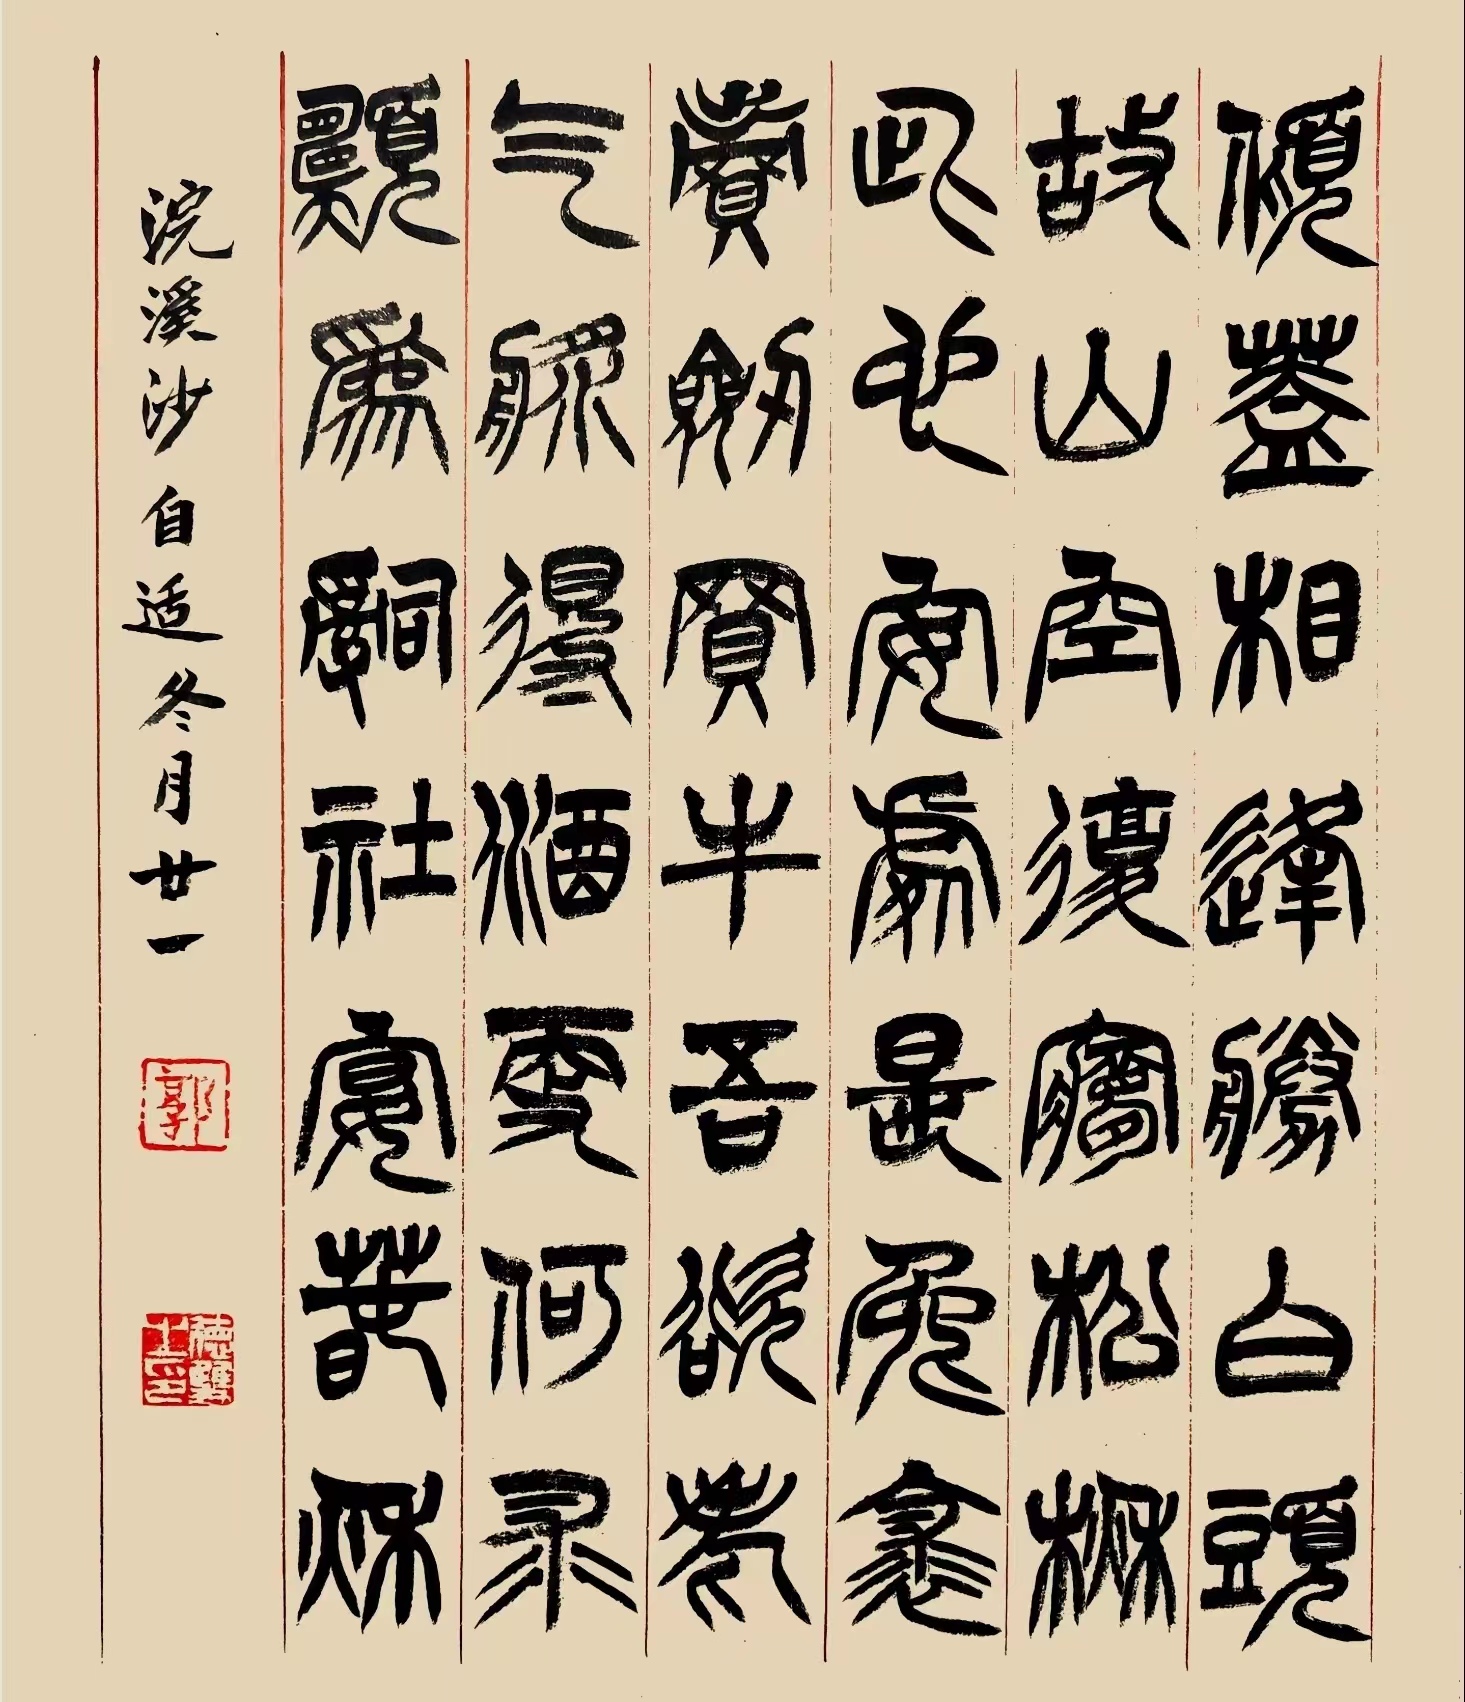 傾蓋相逢勝白頭
故山空復夢松楸
此心安處是菟裘
賣劍買牛吾欲老
乞漿得酒更何求
願為辭社宴春秋
浣溪沙自适冬月廿一
郭